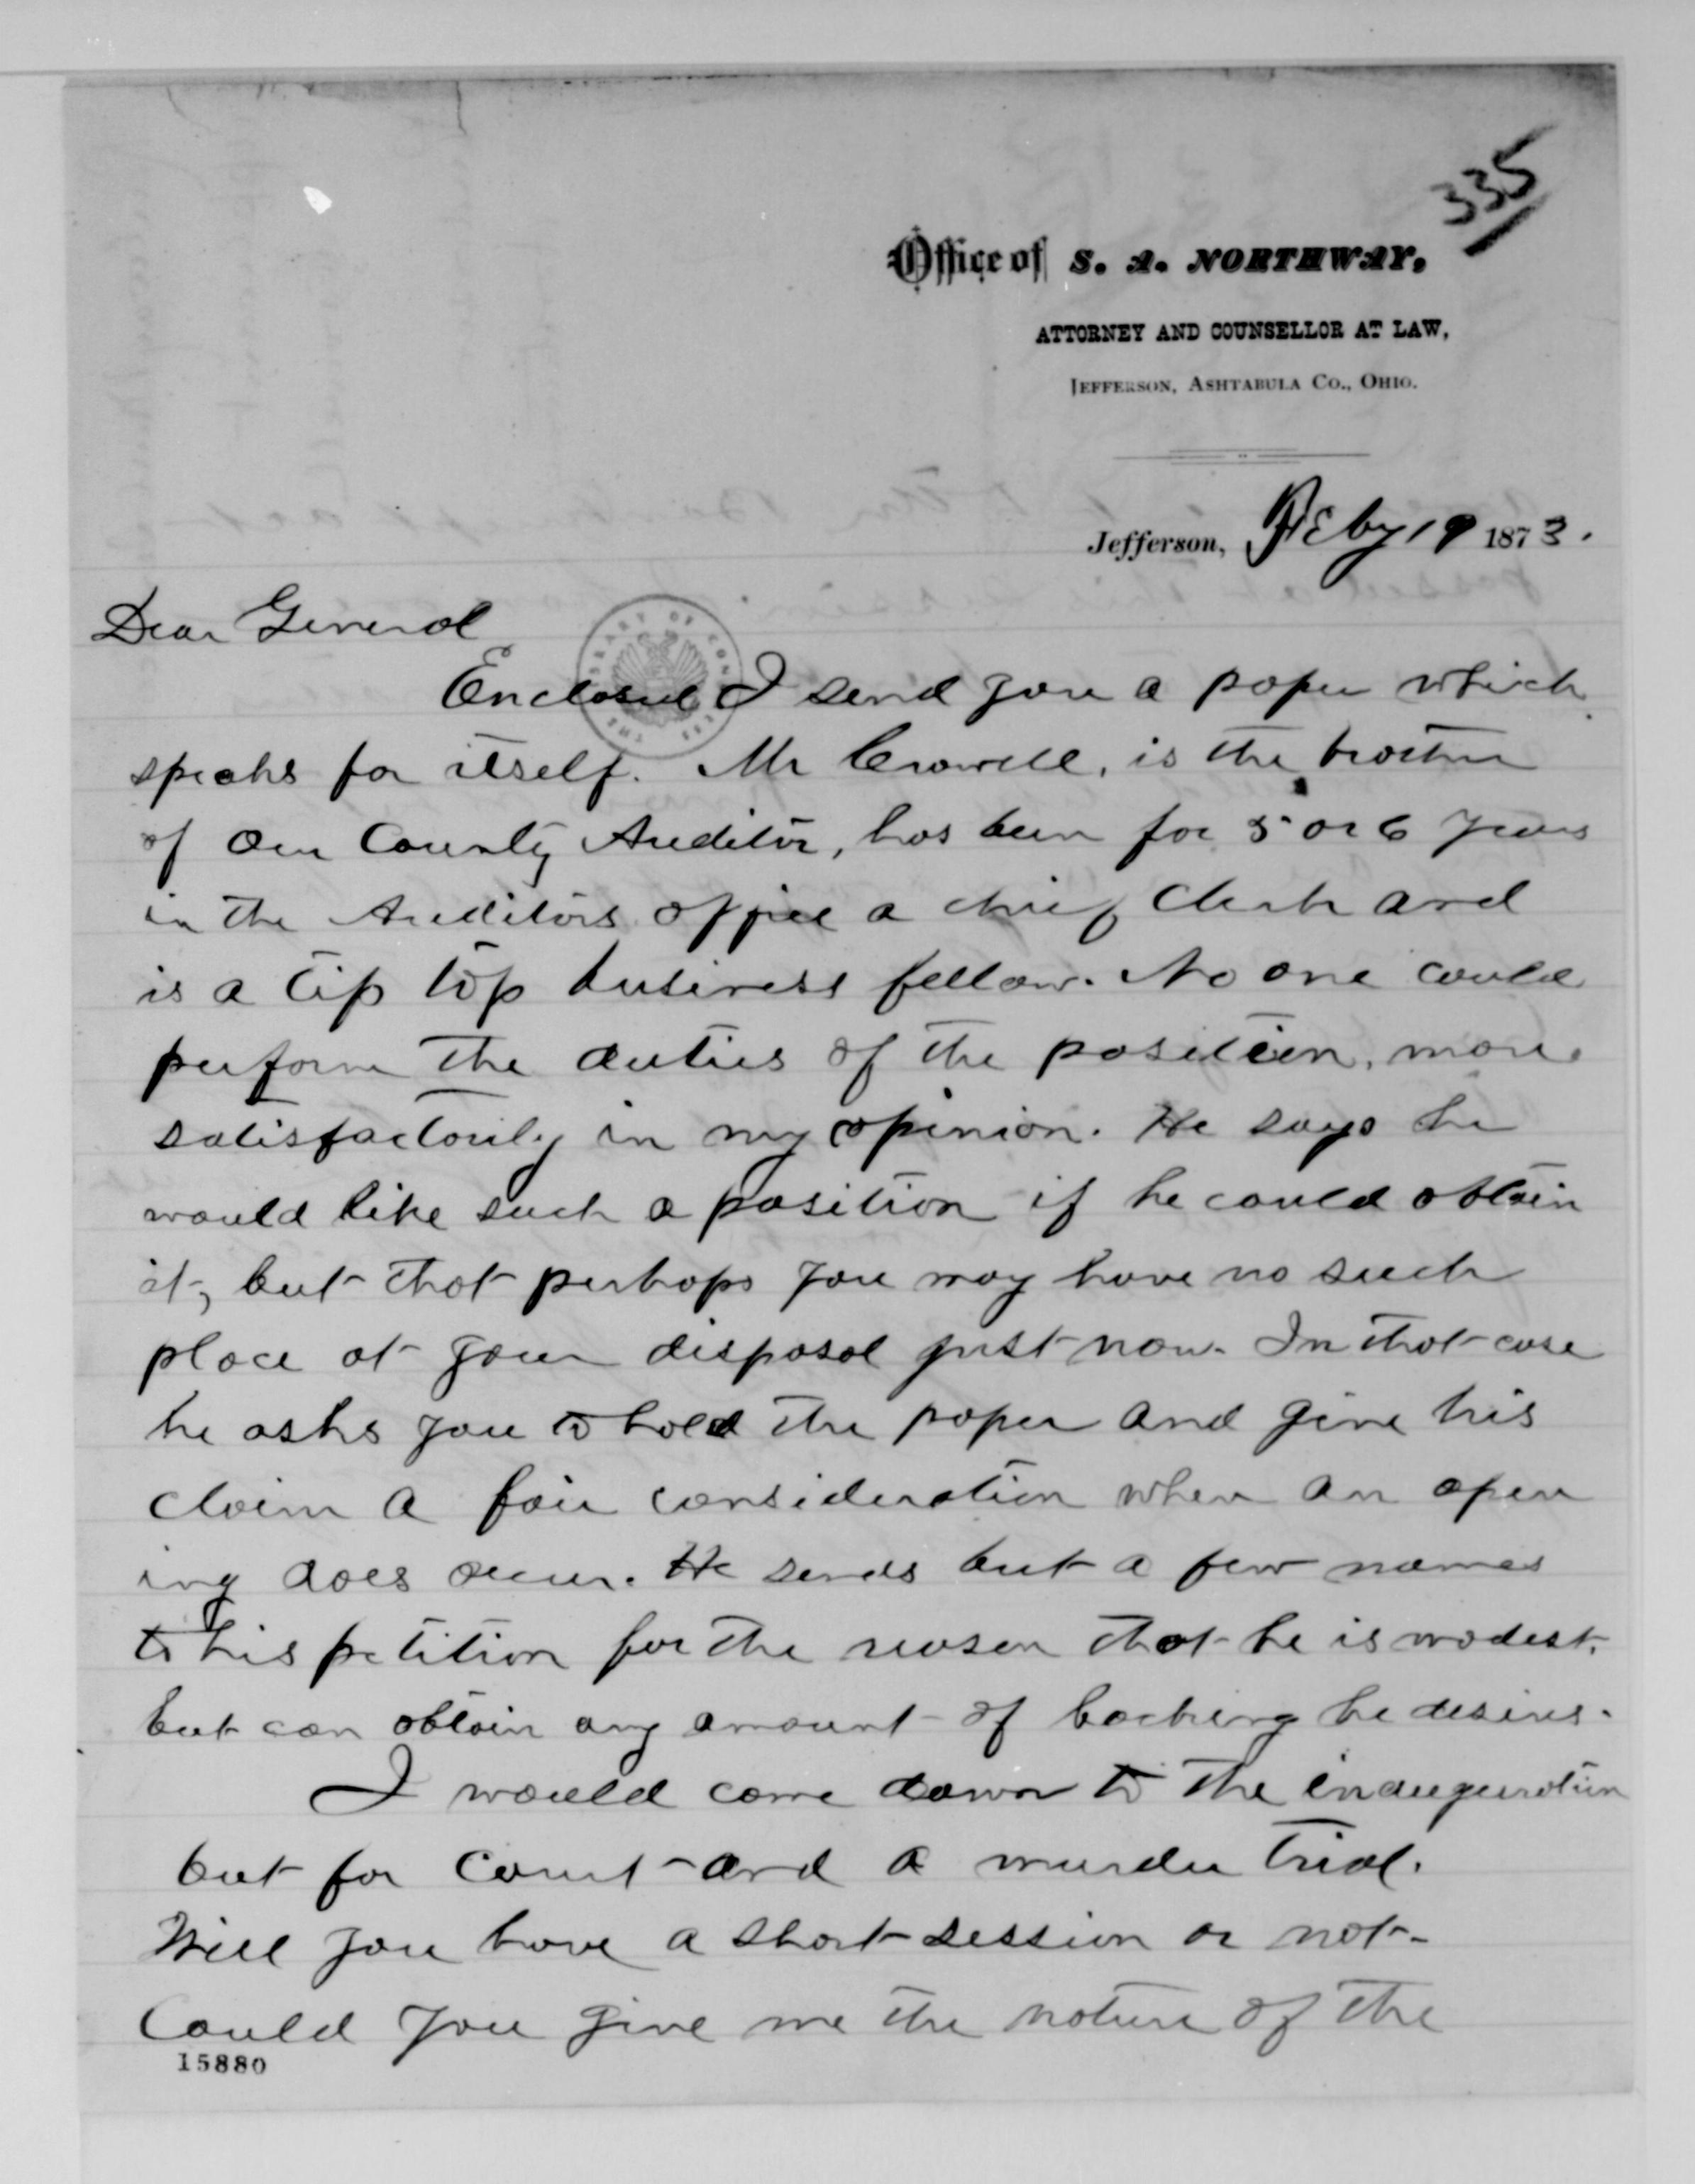 335
Office of S. A. NORTHWAY,
ATTORNEY AND COUNSELLOR AT LAW,
JEFFERSON, ASHTABULA CO., OHIO.
Jefferson, Feby 19 1873.
Dear General
Enclosed I send you a paper which
speaks for itself. Mr Crowell, is the brother
of our County Auditor, has been for 5 or 6 years
in the Auditors office a chief Clerk and
is a tip top business fellow. No one could
perform the duties of the position, more
satisfactorily in my opinion. He says he
would like such a position if he could obtain
it, but that perhaps you may have no such
place at your disposal just now. In that case
he asks you to hold the paper and give his
claim a fair consideration when an open
ing does occur. He sends but a few names
to his petition for the reason that he is modest.
but can obtain any amount of backing he desires.
I would come down to the inauguration
but for Court and a murder trial.
Will you have a short session or not-
Could you give me the nature of the
15880